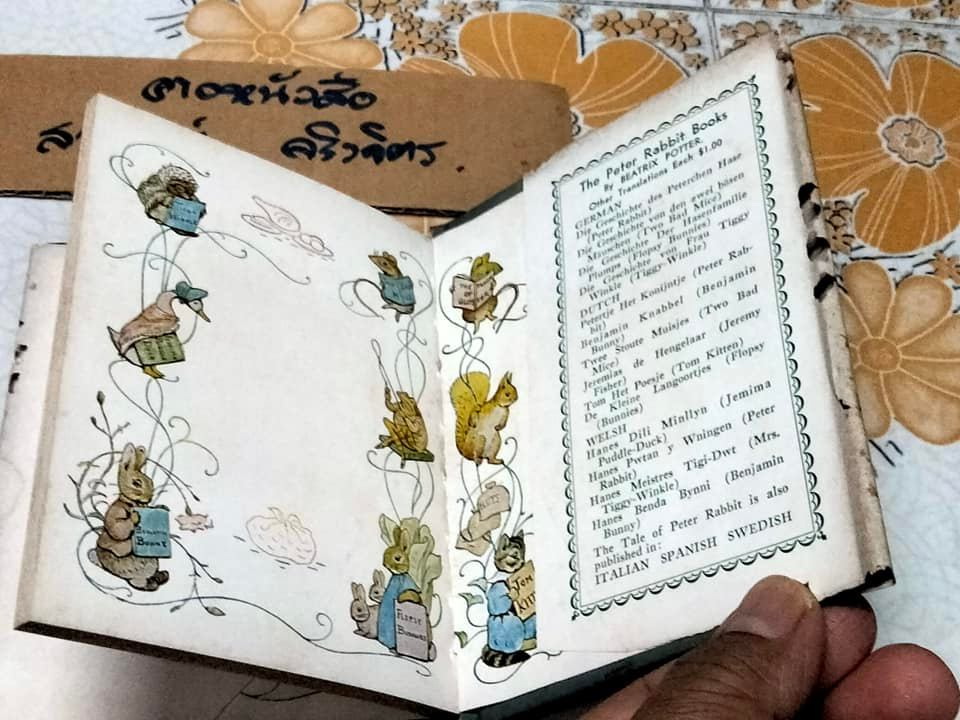 ฅาองหนังสือ
สิริวจิตร
BENJAMIN
BUNNY
FLOPSY
BUNNIES
NUTS
TOM
KIT
The Peter Rabbit Books
By BEATRIX POTTER.
Other Translations Each $1.00
GERMAN
Die Geschichte des Peterchen Hase
(Peter Rabbit)
Die Geschichte von den zwei bösen
Mäuschen (Two Bad Mice)
Die Geschichte Der Hasenfamilie
Plumps (Flopsy Bunnies)
Die Geschichte von Frau Tiggy
Winkle (Tiggy-Winkle)
DUTCH
Petertje Het Konijntje (Peter Rab-
bit)
Benjamin Knabbel (Benjamin
Bunny)
Twee Stoute Muisjes (Two Bad
Mice)
Jeremias de Hengelaar (Jeremy
Fisher)
Tom Het Poesje (Tom Kitten)
De Kleine Langoortjes (Flopsy
(Bunnies)
WELSH
Hanes Dili Minllyn (Jemima
Puddle-Duck)
Hanes Pwtan y Wningen (Peter
Rabbit)
Hanes Meistres Tigi-Dwt (Mrs.
Tiggy-Winkle)
Hanes Benda Bynni (Benjamin
Bunny)
The Tale of Peter Rabbit is also
published in:
ITALIAN SPANISH SWEDISH